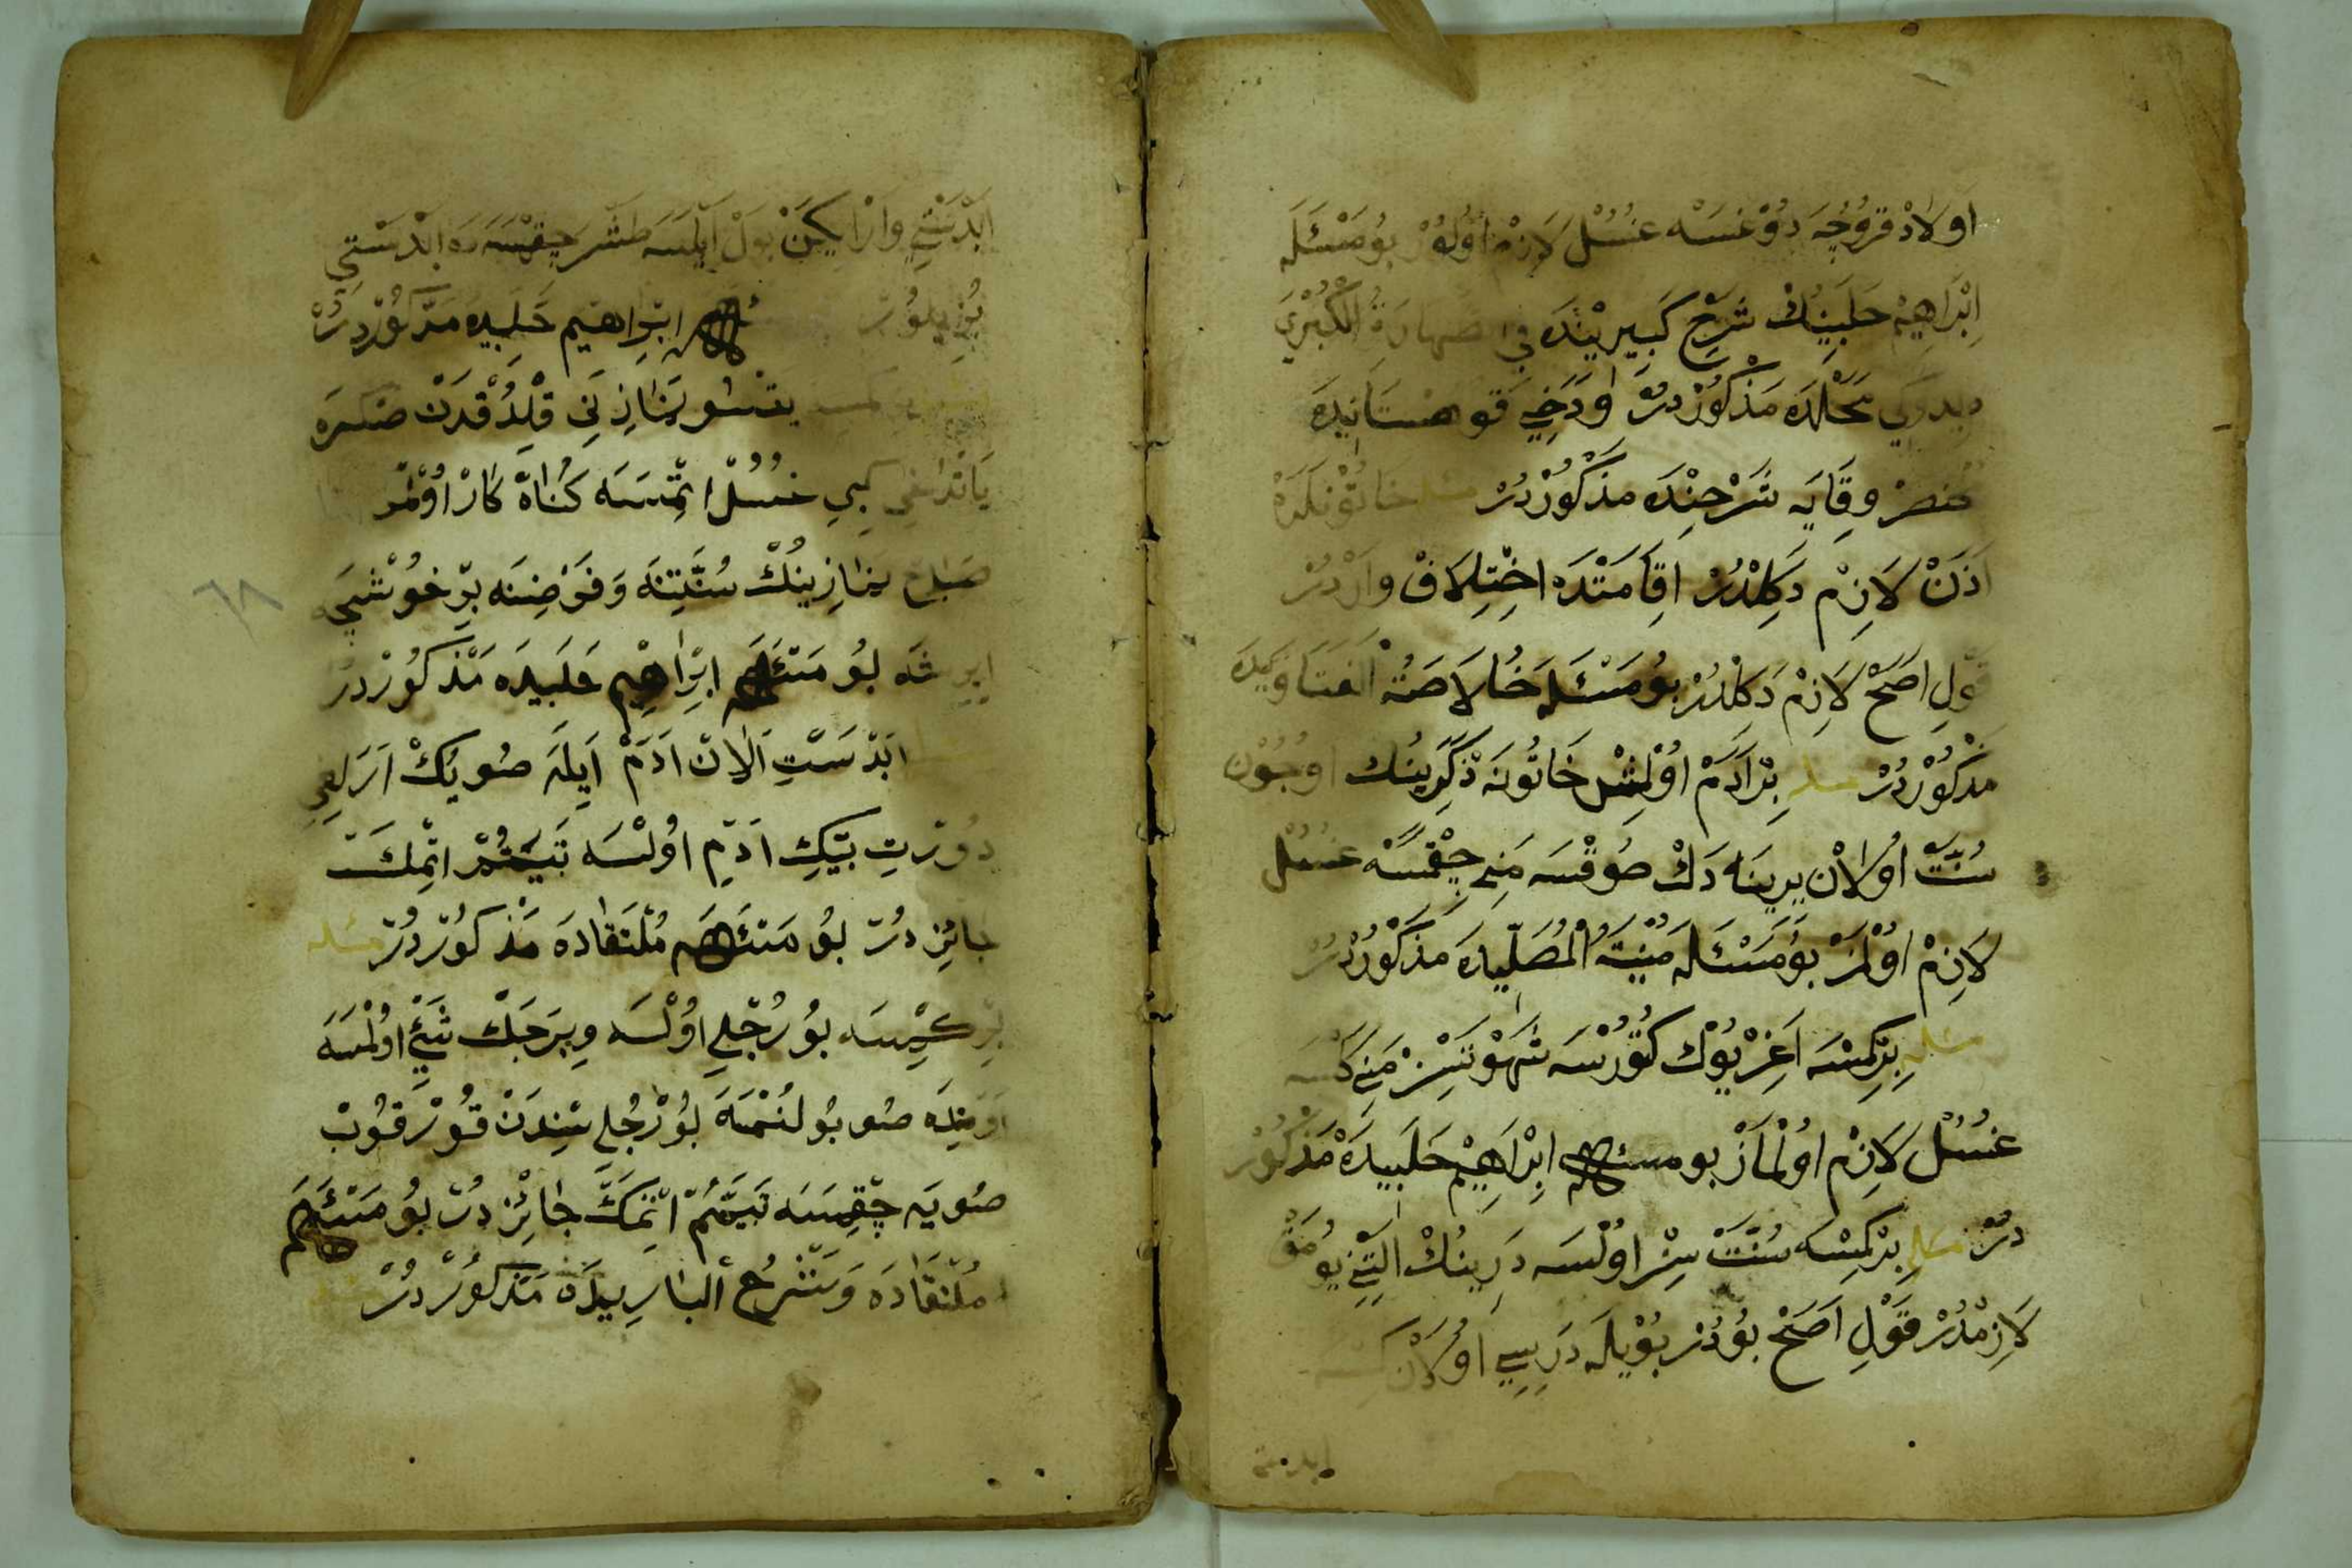 اَوْلَادْ قُرُوجَه دُوْغَسَه غُسُلْ لَازِمْ اُولُوْر بُومَسْئَلَه
اِبْرَاهِيْم حَلَبِينِكْ شَرْحِ كَبِيرِيْنْدَه فِي طَهَارَةُ الْكُبْرَي
ديدوكي مَحَلْدَه مَذْكُورْدُرْ اوْدَخِي قَوهستَانِيدَه
مُختصَرْ وِقَايَه شَرْحِنْدَه مَذْكُوْرْدُرْ مسله خَاتُوْنلَرَه
اَذَنْ لَازِمْ دَكِلْدُرْ اِقَامَتْدَه اخْتِلَافْ وَارْدُرْ
قَوْلِ اَصَحّ لَازِمْ دَكِلْدُرْ بُومَسْئَلَه خُالَاصَةُ الفَتَاوَيدَه
مَذْكُوْرْدُرْ مسله بِرْ اَدَمْ اوُلمِشْ خَاتُونَه ذَكَرِينُكْ اوجُوْن
سُنَّتْ اُولَانْ يرِينَه دَكْ صُوقْسَه مَنِي چِقْمَسَه غُسُلْ
لَازِمْ اوْلمَزْ بُومَسْئَلَه مُنْيَةُ الْمُصَلِّيدَه مَذْكُوْرْدُرْ
مسله بِرْكِمْسَه اَغِرْ يُوْك كُتُورْسَه شَهْوَتسِزْ مَنِي كَلْسَه
غُسُلْ لَازِمْ اوُلمازْ بومسئله اِبْرَاهِيْم حَلَبِيدَه مَذْكُورْ
دُرْ مسله بِرْكمسَه سُنَّتْ سِزْ اوُلْسَه دَرِينُكْ الْتِنِي يُومَقْ
لَازِمْدُرْ قَوْلِ اَصَحّ بُودُرْ بُوْيلَه دَرِيسِي اوُلَانْ كمسه
ابدستي
اَبْدَسْتِي وَارْايكَنْ بَوْلْ ايلَسَه طَشْرَه چِقْمَسَه اَبْدَسْتِي
بُوزِيلُورْ ابْرَاهيم حَلبِيده مَذْكُورْدِرُرْ
يتسو نمَازِنِي قلْدُقْدَنْ صكره
يَاتْدُاغِي كِبِي غُسُلْ اتْمَسَه كُنَاهْ كَارْ اوُلْمَزْ
صَبَاح نمازِينُكْ سُنَّتِنَه وَفَرْضِنَه بِرْ خُوشْجَه
بُو مَسْئَلَه ابْرَاهِيم حَلَبيدَه مَذْكُورْدُرْ
اَبْدَسْتِ اَلَانْ اَدَمْ اَيلَه صُويُكْ اَرَالِغِي
دُوْرْت بيكِ ادِمِ اوُلْسَه تَيَمُّمْ اتْمِكَ
جَائِزدُرْ بُو مَسْئَلَه مُلْتَقَادَه مَذْكُورْدُرْ مسئله
بِرْ كمْسَه بُورُجْلِي اوُلْسَه وِيرَجَكْ شَئْ اوُلْمَسَه
صُو بُولُنْمَسَه بُورْجُلي سِنِدَنْ قُورْقُوبْ
صُويَه چِقْمسَه تَيَمُّمْ اتْمَكَ جَائِزْدُرْ بُومَسْئَلَه
مُلْتَقَادَه وَشَرْحُ الْبَارِيدَه مَذْكُورْدُرْ مسئله
٦٨